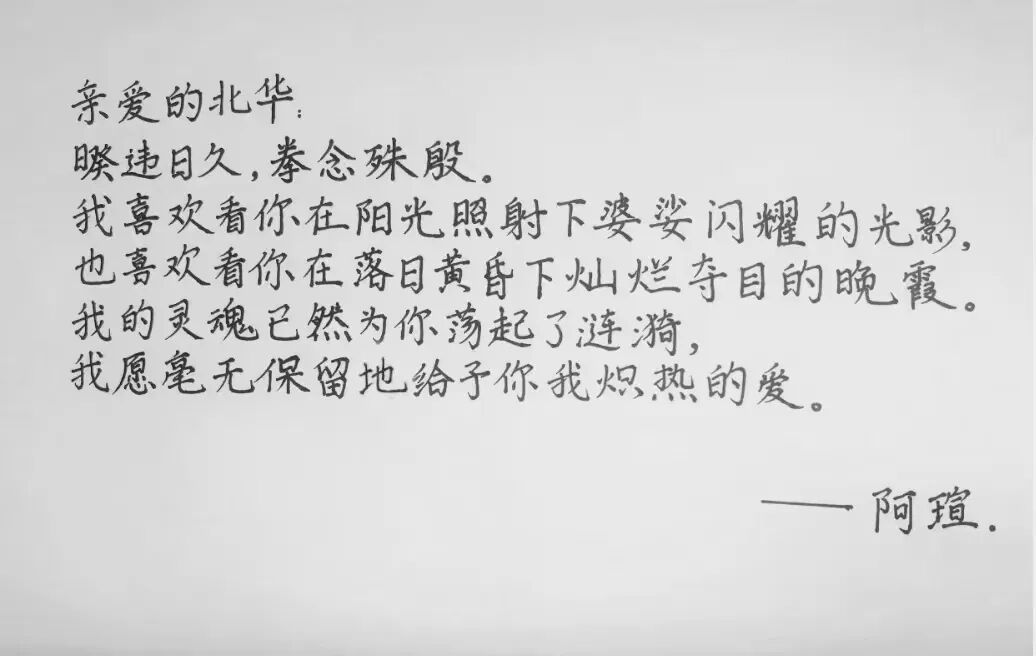 亲爱的北华：
暌违日久，拳念殊殷。
我喜欢看你在阳光照射下婆娑闪耀的光影，
也喜欢看你在落日黄昏下灿烂夺目的晚霞。
我的灵魂已然为你荡起了涟漪，
我愿毫无保留地给予你我炽热的爱。
——阿瑄.